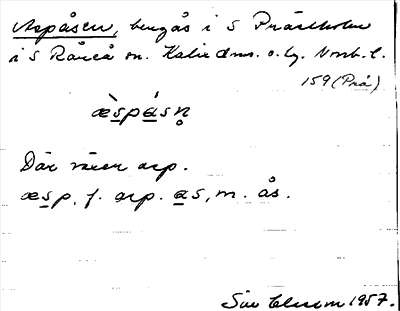 Aspåsen, bergås i S Prästholm
i S Råneå sn. Kalix dms. o. lg. Norrb. l.
159 (Prä)
æ̀spásn̥
Där växer asp.
æsp, f. asp. ås, m. ås.
1957.